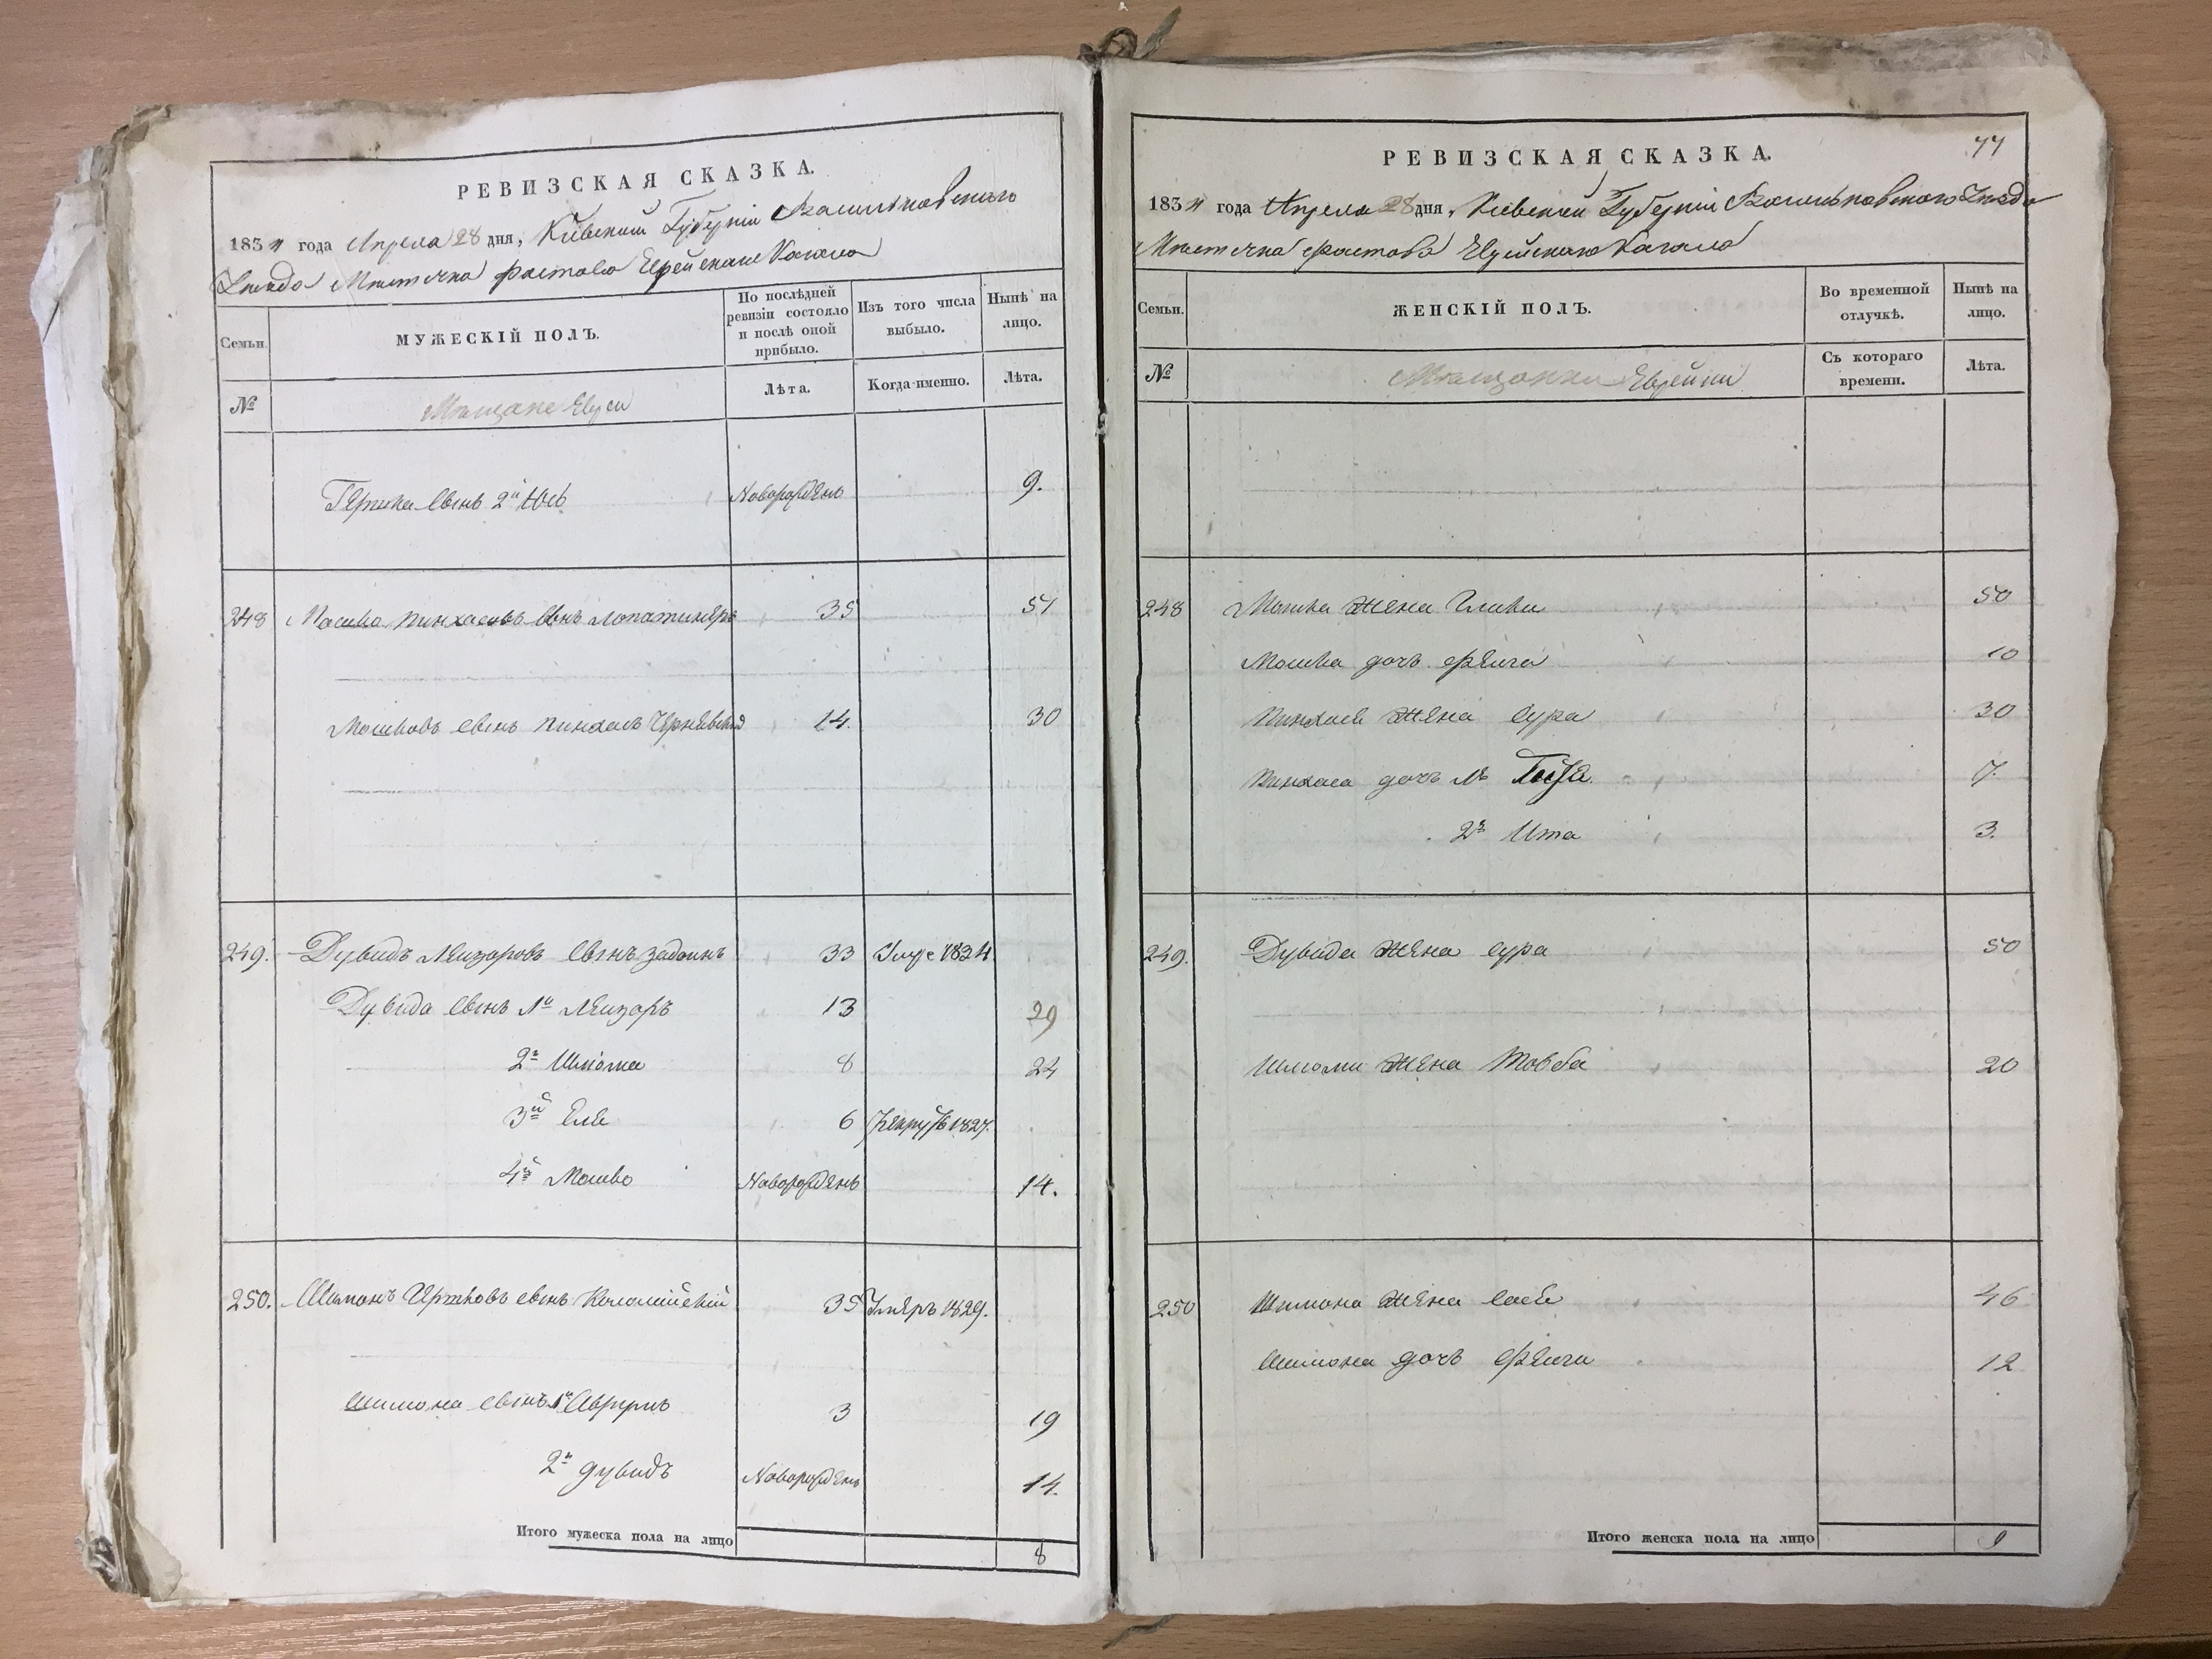 РЕВИЗСКАЯ СКАЗКА.
1834 года Апреля 28 дня, Кіевской Губерніи Васильковскаго
Уезда Мѣстечка Фастова Еврейскаго Кагала
Семьи.
МУЖЕСКІЙ ПОЛЪ.
По послѣдней ревизіи состояло и послѣ оной прибыло.
Изъ того числа выбыло.
Нынѣ на лицо.
№
Мѣщане Евреи
Лѣта.
Когда именно.
Лѣта.
Гершка сынъ 2й Іось Новорожденъ 9.
248 Мошко Пинхасовъ сынъ Лопатинеръ 35 51
Мошковъ сынъ Пинхасъ Чернявскій 14. 30
249. Дувидъ Лейзоровъ сынъ 33 1834
Дувида сынъ 1й Лейзоръ 13 29
2й Шліома 8 24
3й Еле 6 Рекрутъ 1827.
4й Мошко Новорожденъ 14.
250. Шимонъ Гершковъ сынъ Коломійскій 35 Умеръ 1829.
Шимона сынъ 1й Аврумъ 3 19
2й Дувидъ Новорожденъ 14.
Итого мужеска пола на лицо 8
РЕВИЗСКАЯ СКАЗКА.
77
1834 года Апреля 28 дня, Кіевской Губерніи Васильковскаго Уезда
Мѣстечка Фастова Еврейскаго Кагала
Семьи.
ЖЕНСКІЙ ПОЛЪ.
Во временной отлучкѣ.
Нынѣ на лицо.
№
Мѣщанки Еврейки
Съ котораго времени.
Лѣта.
248 Мошка жена 50
Мошка дочь Фейга 10
Пинхаса жена Сура 30
Пинхаса дочь 1я 7.
2я Ита 3.
249. Дувида жена Сура 50
Шліоми жена Товба 20
250 Шимона жена Бася 46
Шимона дочь Фейга 12
Итого женска пола на лицо 9